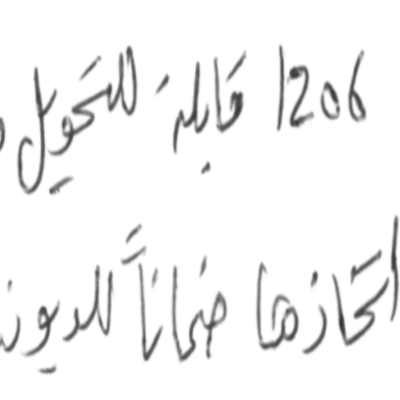 1206 قابلة للتحويل
اتخاذها ضماناً للديون